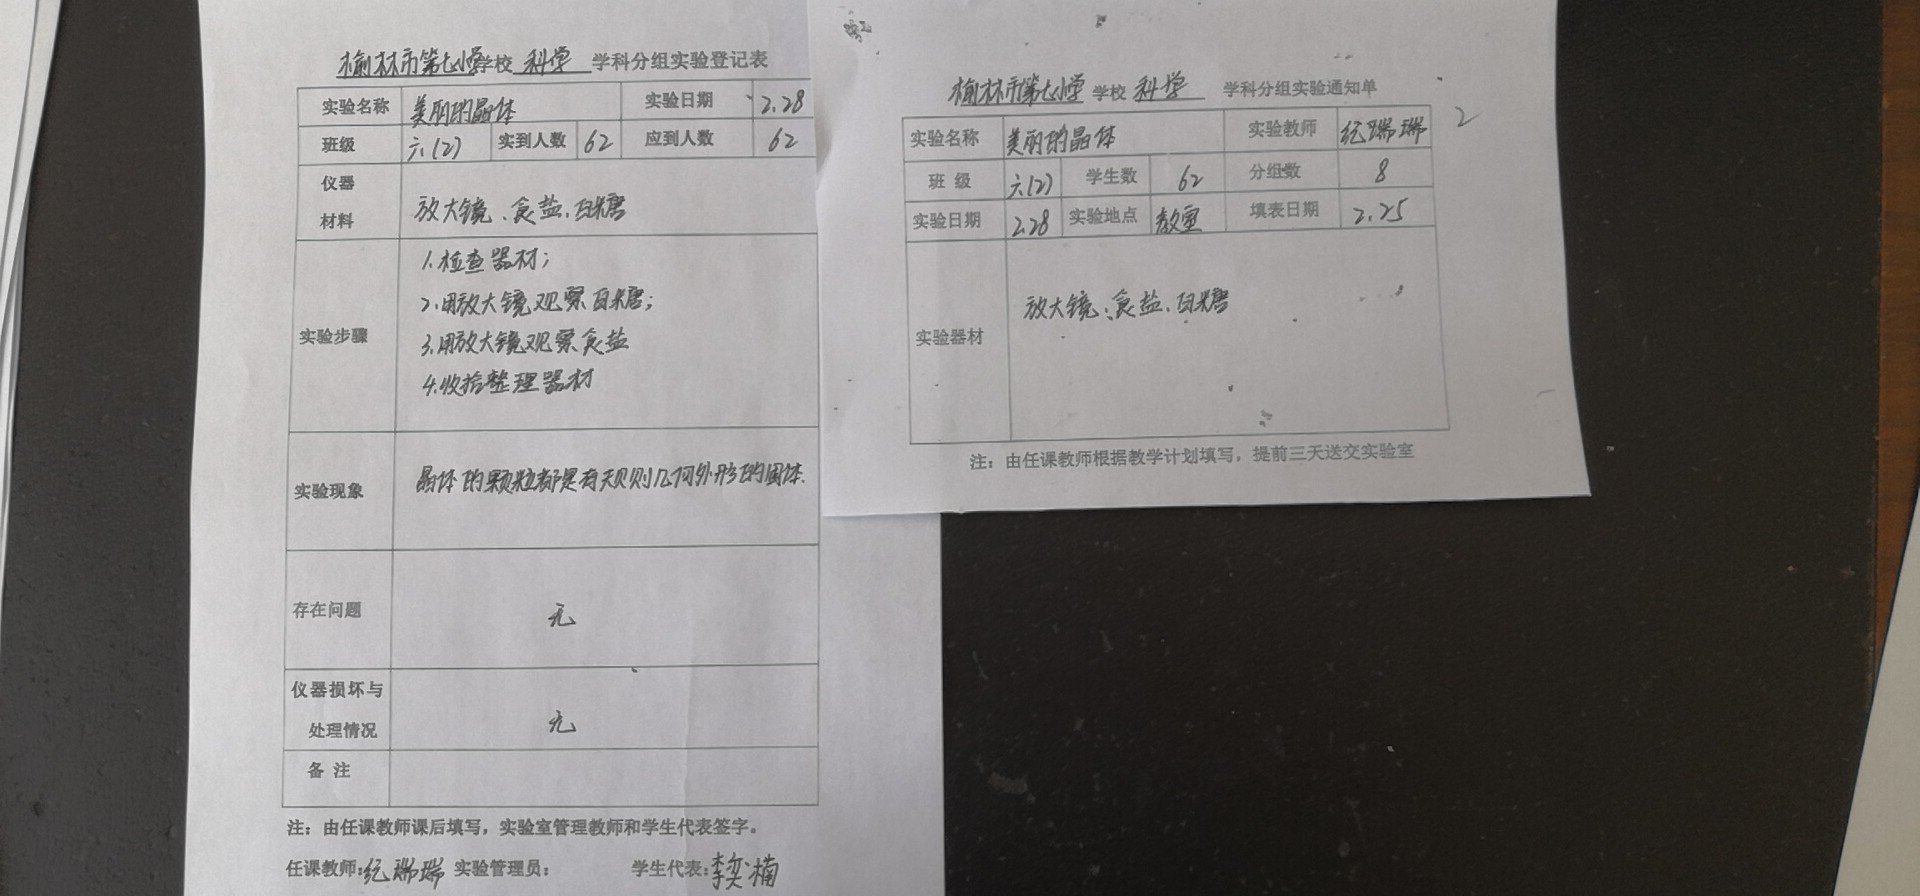 榆林市第七小学学校 科学 学科分组实验登记表
实验名称 美丽的晶体 实验日期 2.28
班级 六(2) 实到人数 62 应到人数 62
仪器
材料
放大镜、食盐、白糖
实验步骤
1.检查器材;
2.用放大镜观察白糖;
3.用放大镜观察食盐
4.收拾整理器材
实验现象 晶体的颗粒都是有规则几何外形的固体.
存在问题 无
仪器损坏与
处理情况
无
备注
注：由任课教师课后填写，实验室管理教师和学生代表签字。
任课教师:纪瑞瑞 实验管理员: 学生代表:李奕楠
榆林市第七小学 学校 科学 学科分组实验通知单
2
实验名称 美丽的晶体 实验教师 纪瑞瑞
班级 六(2) 学生数 62 分组数 8
实验日期 2.28 实验地点 教室 填表日期 2.25
实验器材 放大镜、食盐、白糖
注：由任课教师根据教学计划填写，提前三天送交实验室